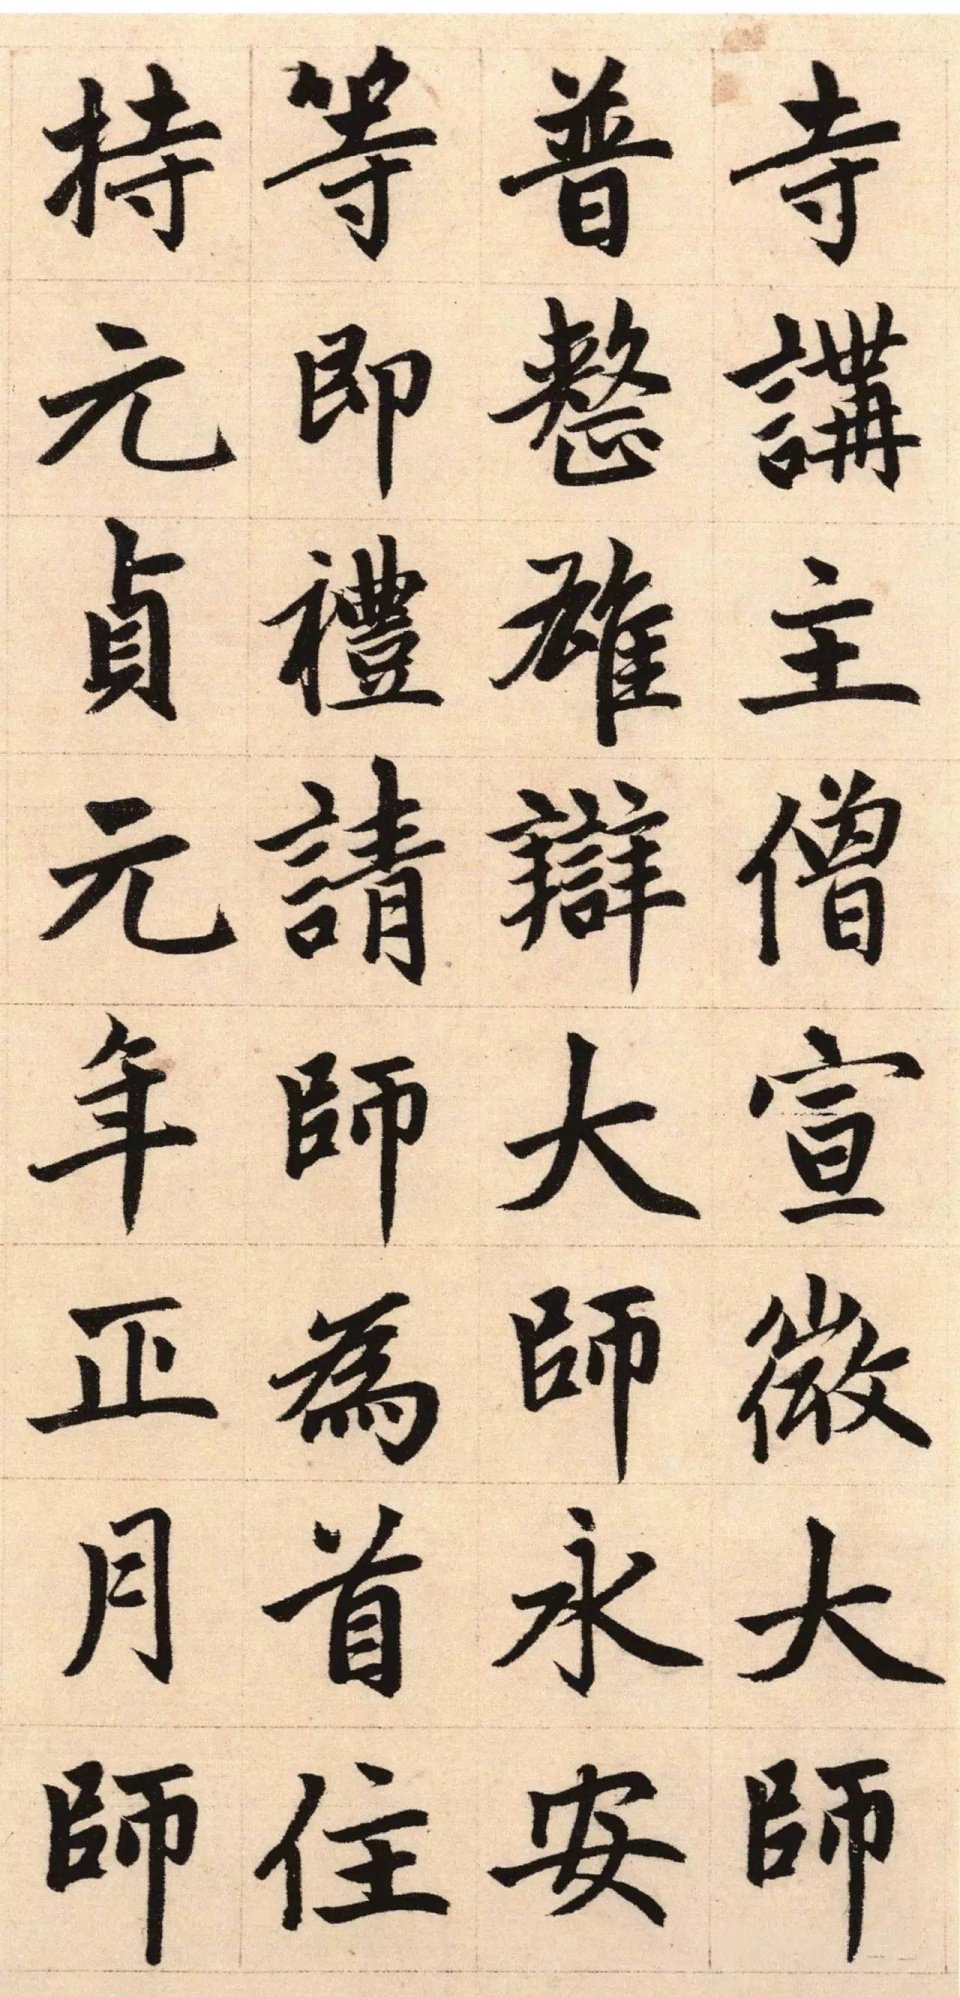 寺講主僧宣微大師
普整雄辯大師永安
等即禮請師為首住
持元元貞年正月師